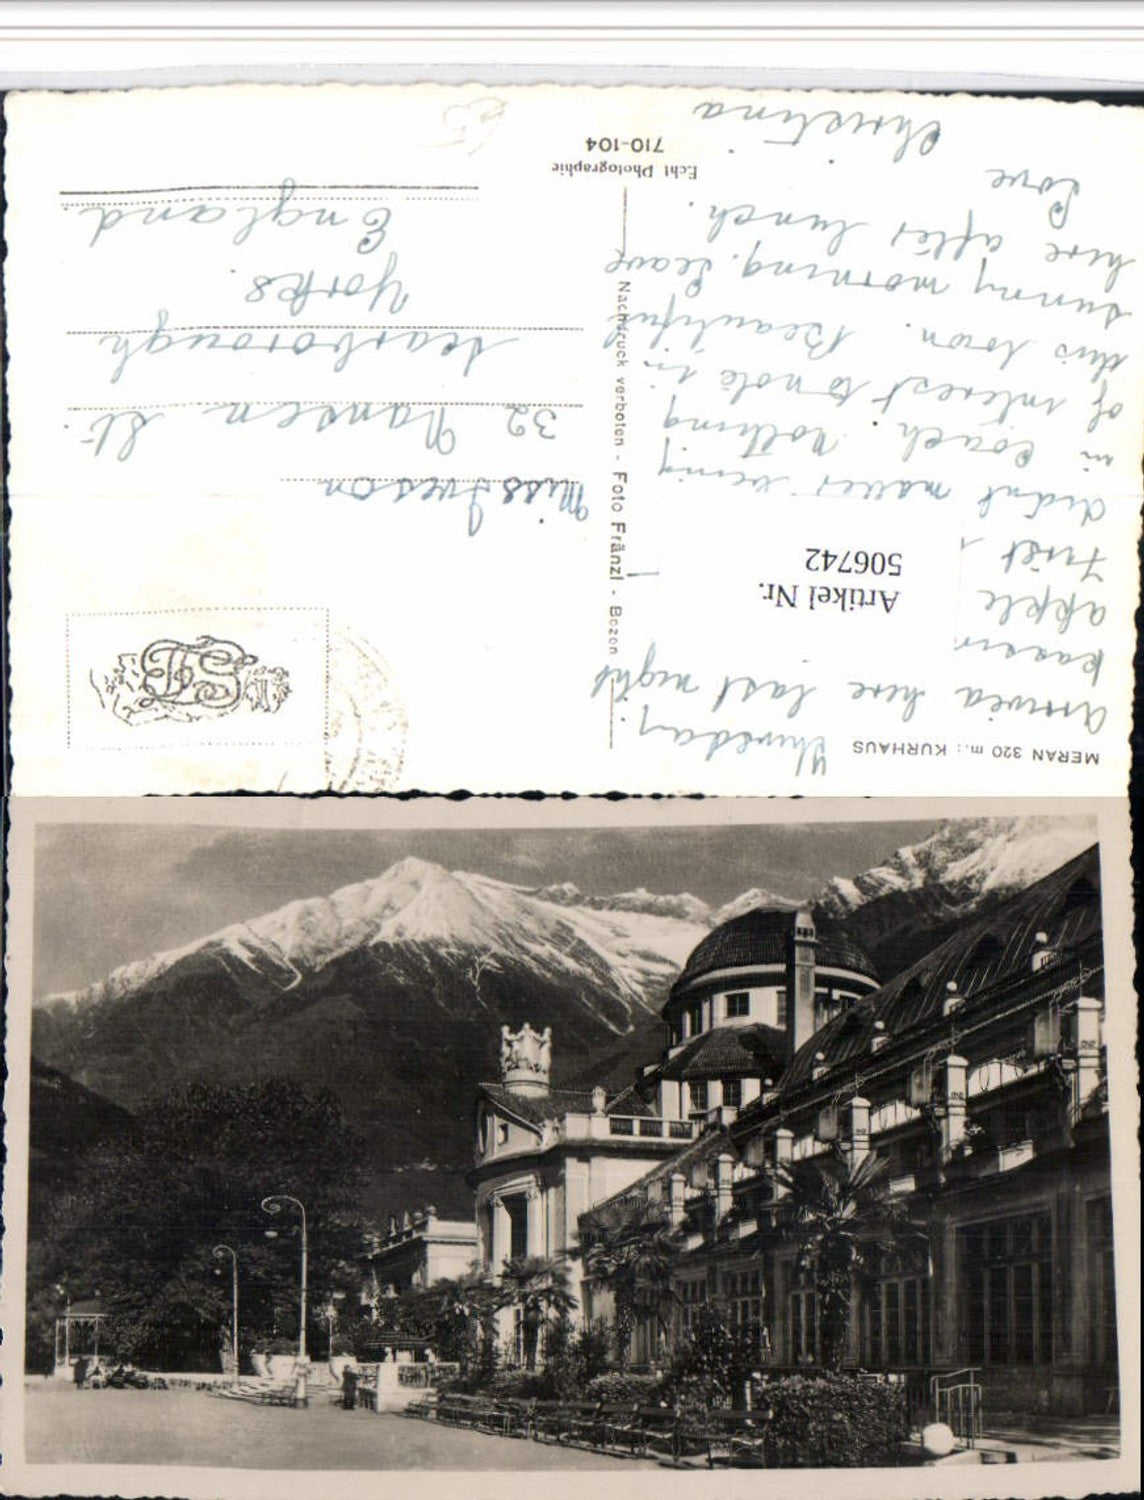 MERAN 320 m.: KURHAUS
Thursday.
Arrived here last night
apple
First
didnt matter being
in Coach. Nothing
of interest to note in
this town. Beautiful
sunny morning. Leave
here after lunch.
Love
Christina
Artikel Nr.
506742
Nachdruck verboten - Foto Fränzl - Bozen
Echt Photographie
710-104
FS
Miss Iveson
32 Nansen St.
Scarborough
Yorks.
England.